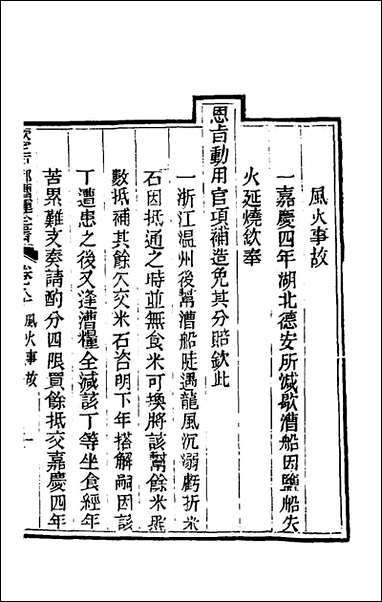 風火事故
一嘉慶四年湖北德安所減歇漕船因鹽船失
火延燒欽奉
恩旨動用官項補造免其分賠欽此
一浙江温州後幫漕船陡遇龍風沉溺虧折米
石因抵通之時並無食米可換將該幫餘米儘
數抵補其餘欠交米石咨明下年搭解嗣因該
丁遭患之後又逢漕糧全減該丁等坐食經年
苦累難支奏請酌分四限買餘抵交嘉慶四年
欽定戶部漕運全書 卷八 風火事故 一